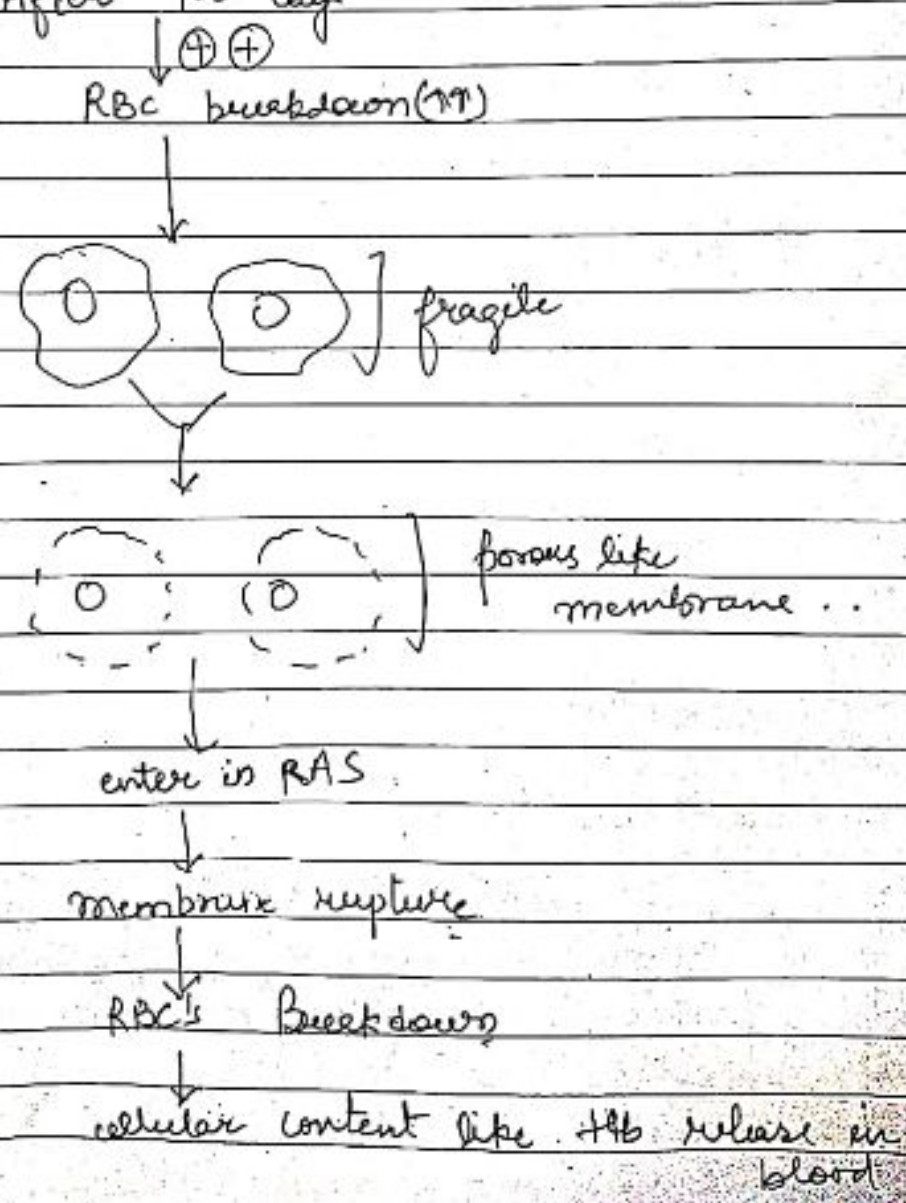 After days
⊕ ⊕
RBC breakdown (↑↑)
fragile
porous like
membrane ..
enter in RAS
membrane rupture
RBC's Breakdown
cellular content like Hb release in
blood